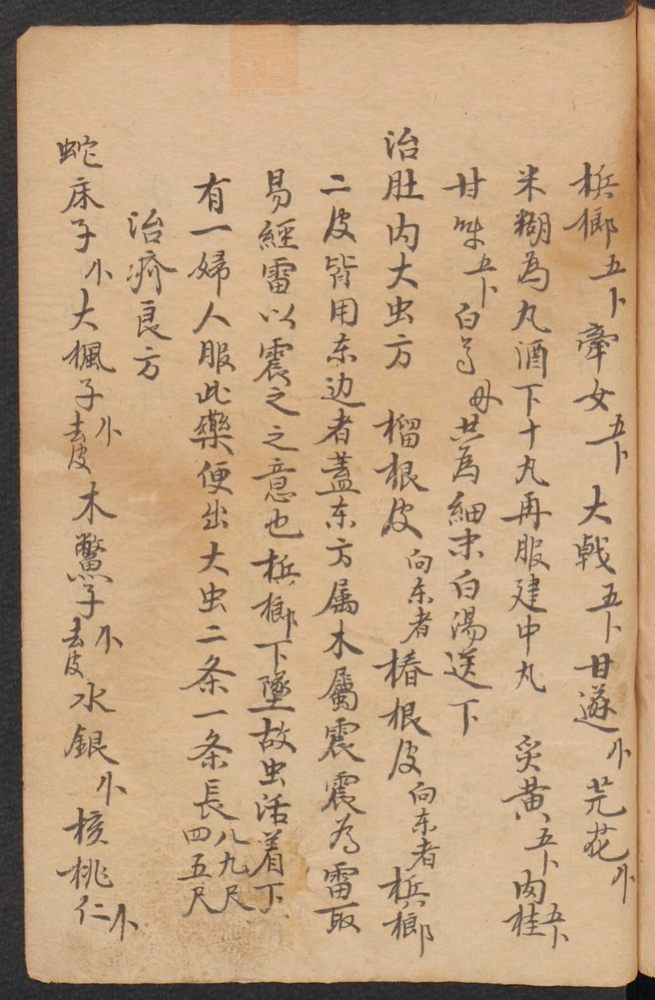 梹榔五卜牽女五卜大戟五卜甘遂小芫花小
米糊為丸酒下十丸再服建中丸 炙黄五卜肉桂五卜
甘草五卜白芍 共為細末白湯送下
治肚内大虫方 榴根皮向东者椿根皮向东者梹榔
二皮皆用东边者蓋东方属木屬震震為雷取
易經雷以震之之意也梹榔下墜故虫活着下
有一婦人服此藥便出大虫二条一条長八九尺四五尺
治疥良方
蛇床子小大楓子小去皮木鱉子小去皮水銀小核桃仁小